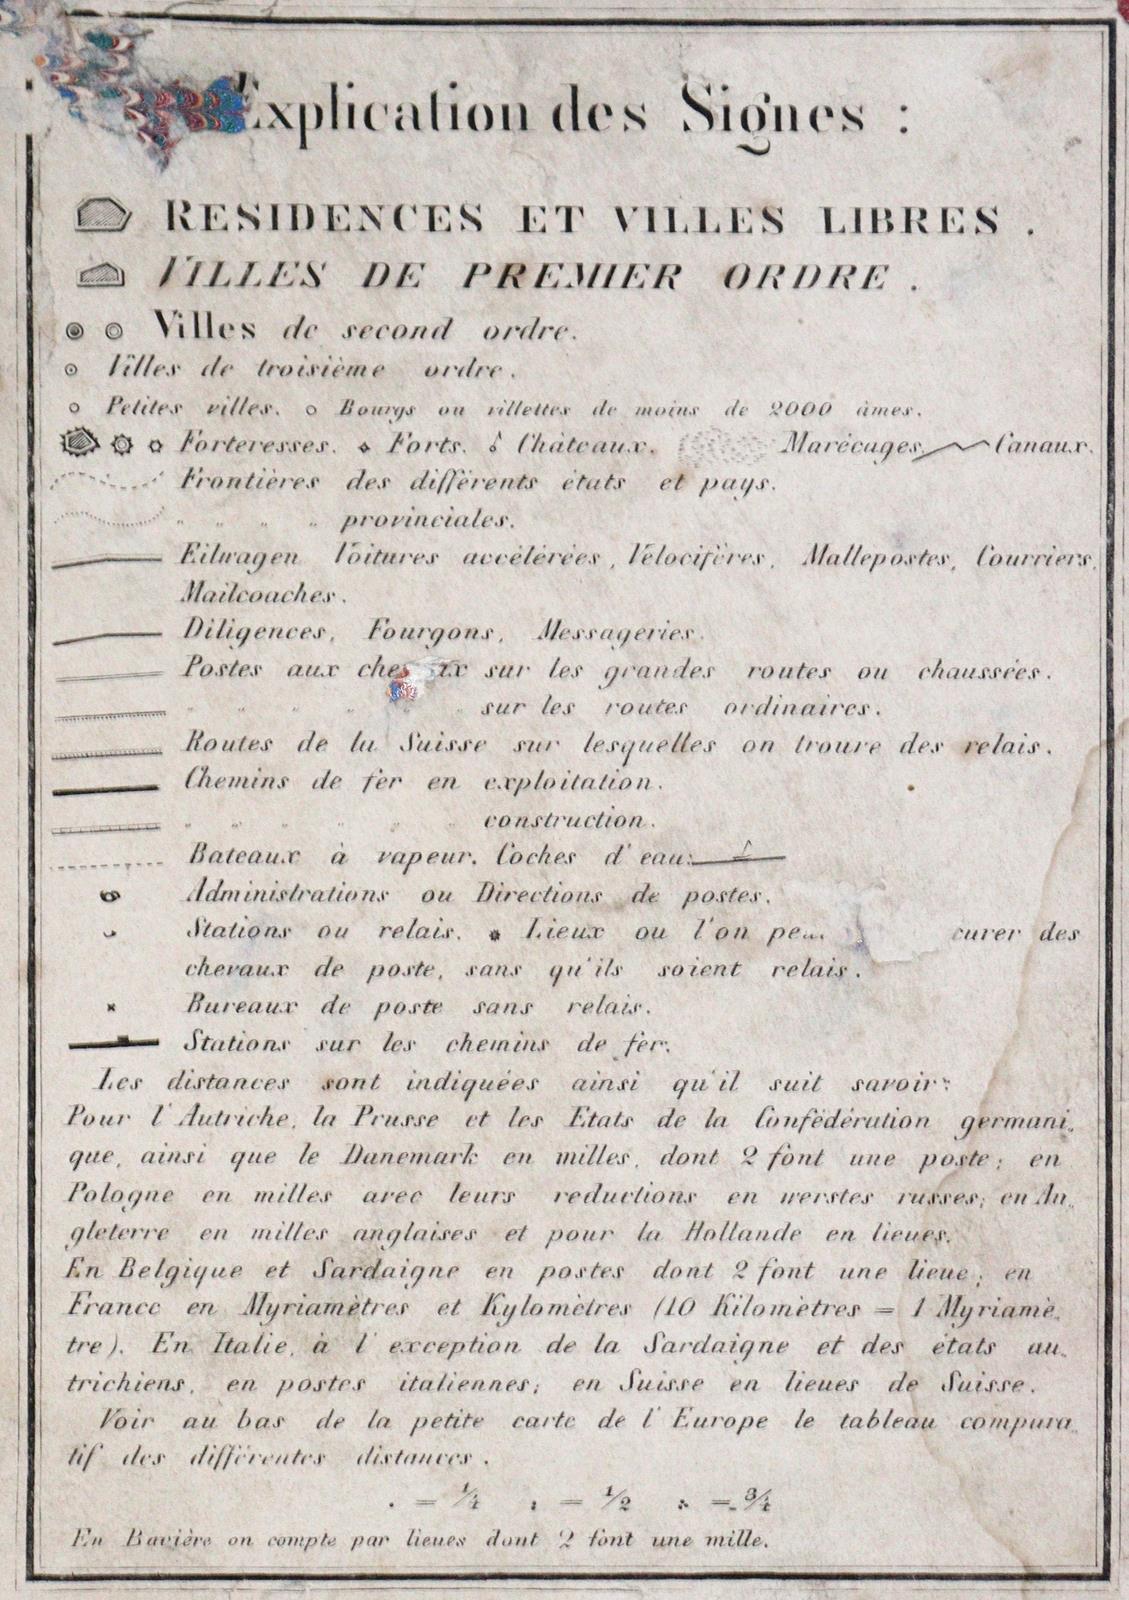 Explication des Signes :
RESIDENCES ET VILLES LIBRES .
VILLES DE PREMIER ORDRE .
Villes de second ordre.
Villes de troisième ordre.
Petites villes. Bourgs ou villettes de moins de 2000 âmes.
Forteresses. Forts. Châteaux. Marécages, Canaux.
Frontières des différents états et pays.
" " " " provinciales.
Eilwagen Voitures accélérées, Vélocifères, Mallepostes, Courriers,
Mailcoaches.
Diligences, Fourgons, Messageries.
Postes aux sur les grandes routes ou chaussées.
" " " " " " sur les routes ordinaires.
Routes de la Suisse sur lesquelles on trouve des relais.
Chemins de fer en exploitation.
" " " " " " construction.
Bateaux à vapeur. Coches d'eau:
Administrations ou Directions de postes.
Stations ou relais. Lieux ou l'on des
chevaux de poste, sans qu'ils soient relais.
Bureaux de poste sans relais.
Stations sur les chemins de fer.
Les distances sont indiquées ainsi qu'il suit savoir:
Pour l'Autriche, la Prusse et les Etats de la Confédération germani„
que, ainsi que le Danemark en milles, dont 2 font une poste; en
Pologne en milles avec leurs reductions en werstes russes; en An„
gleterre en milles anglaises et pour la Hollande en lieues.
En Belgique et Sardaigne en postes dont 2 font une lieue; en
France en Myriamètres et Kylomètres (10 Kilomètres = 1 Myriamè„
tre). En Italie, à l'exception de la Sardaigne et des états au„
trichiens, en postes italiennes; en Suisse en lieues de Suisse.
Voir au bas de la petite carte de l'Europe le tableau compara„
tif des différentes distances.
. = 1/4 : = 1/2 ∴ = 3/4
En Bavière on compte par lieues dont 2 font une mille.